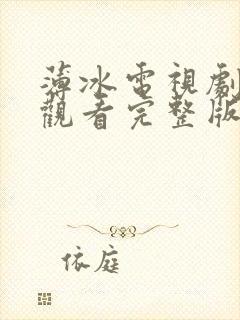 薄冰電視劇
觀看完整版
依庭